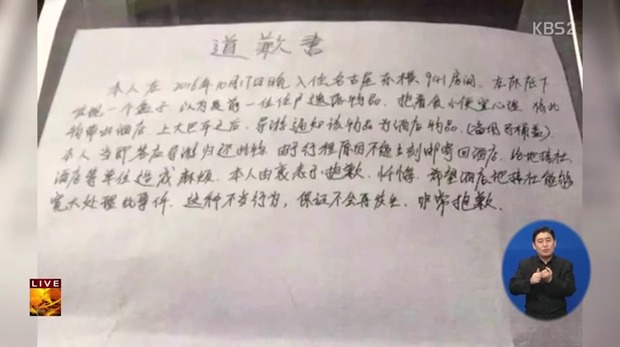 KBS2
道歉書
本人在2016年10月17日晚入住名古屋东横941房间，在床底下
发现一个盖子，以为是前一位住户遗落物品，抱着贪小便宜心理，将此
物带出酒店，上大巴车之后，导游通知该物品为酒店物品。(备用马桶盖)
本人当即答应导游归还此物，由于行程原因不能立刻邮寄回酒店，给地接社
酒店等单位造成麻烦，本人由衷表示抱歉、忏悔，希望酒店地接社能够
宽大处理此事件，这种不当行为，保证不会再发生，非常抱歉．
LIVE